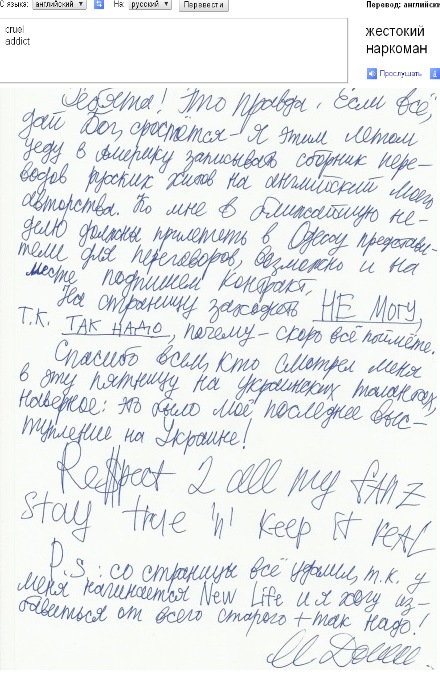 С языка: английский На: русский Перевести Перевод: английски
cruel
addict
жестокий
наркоман
Прослушать
Ребята! Это правда. Если всё,
дай Бог, сростётся - я этим летом
уеду в Америку записывать сборник пере-
водов русских хитов на английский моего
авторства. Ко мне в ближайшую не-
делю должны прилететь в Одессу представи-
тели для переговоров, возможно и на
месте подпишем контракт.
На страницу заходить НЕ МОГУ,
Т.К. ТАК НАДО, почему - скоро всё поймёте.
Спасибо всем, кто смотрел меня
в эту пятницу на украинских талантах,
наверное: это было моё последнее выс-
тупление на Украине!
Re$pect 2 all my fANZ
Stay true 'n' keep it reAL
P.S: со страницы всё удалил, т.к. у
меня начинается New Life и я хочу из-
бавиться от всего старого + так надо!